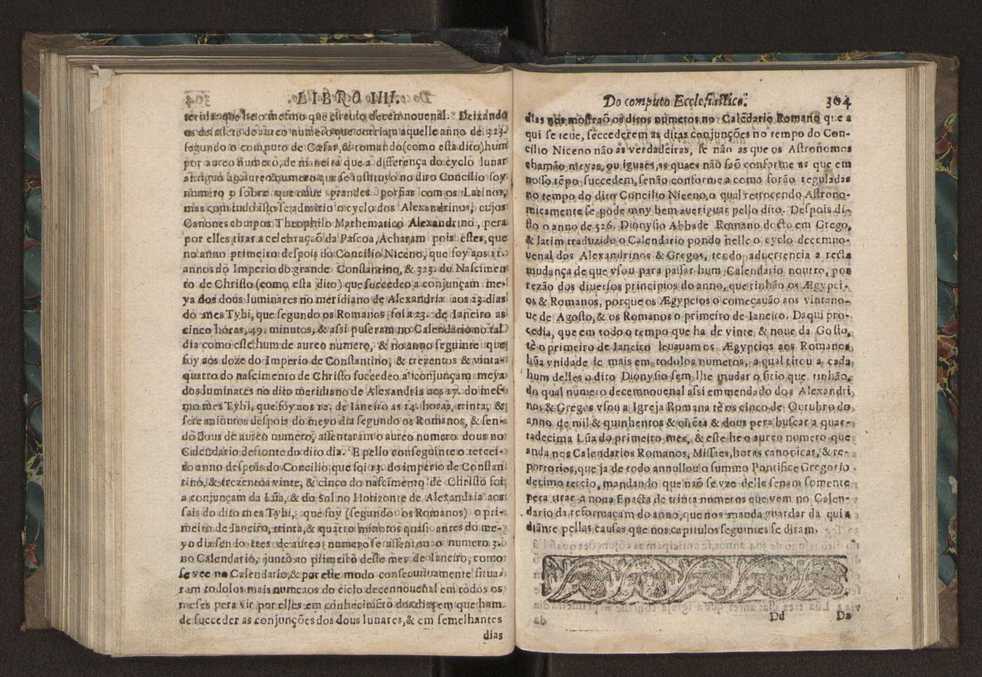 LIBRO IIII.
numero, que he o mesmo que circulo decennouenal. Deixando
os do aureo numero que aquelle anno de 323.
segundo o computo de Cæsar, & tomando (como esta dito) hum
por aureo numero, de maneira que a differença do cyclo lunar
antiguo ao aureo numero, que se instituyo no dito Concilio foy
numero 9 sobre que ouue grandes porfias com os Latinos,
mas com tudo isto se admitio o cyclo dos Alexandrinos, cujos
Canones ehu pos Theophilo Mathematico Alexandrino, pera
por elles tirar a celebraçaõ da Pascoa, Acharam pois estes, que
no anno primeiro despois do Concilio Niceno, que foy aos 11.
annos do Imperio do grande Constantino, & 323. do Nascimen
to de Christo (como esta dito) que succedeo a conjunçam me-
ya dos dous luminares no meridiano de Alexandria aos 23. dias
do mes Tybi, que segundo os Romanos foi a 23. de Ianeiro as
cinco horas, 49. minutos, & assi puseram no Calendario no tal
dia como este hum de aureo numero, & no anno seguinte que
foy aos doze do Imperio de Constantino, & trezentos & vinta-
quatro do nascimento de Christo succedeo a conjunçam meya
dos luminares no dito meridiano de Alexandria aos 17. do mes-
mo mes Tybi, que foy aos 12. de Ianeiro as 14. horas, trinta, &
sete minutos despois do meyo dia segundo os Romanos, & sen-
dõ dous de aureo numero, assentaram o aureo numero dous no
Calēdario defronte do dito dia. E pello conseguinte o tercei-
ro anno despois do Concilio que foi 13. do imperio de Constan
tino, & trezentos vinte, & cinco do nascimento de Christo foi
a conjunçam da Lũa, & do Sol no Horizonte de Alexandria aos
sais do dito mes Tybi, que foy (segundo os Romanos) o pri-
meiro de Ianeiro, trinta, & quatro minutos quasi antes do me-
yo dia sendo tres de aureo numero se assentou o numero 3.
no Calendario, junto ao primeiro deste mes de Ianeiro, como
se vee no Calendario, & por este modo consequutivamente situa-
ram todolos mais numeros do ciclo decennouenal em todos os
meses pera vir por elles em conhecimēto dos dias em que ham
de succeder as conjunções dos dous lunares, & em semelhantes
dias
Do computo Ecclesiastico. 304
dias nos mostraõ os ditos numeros no Calēdario Romano que a
qui se teue, seccederem as ditas conjunções no tempo do Con-
cilio Niceno não as verdadeiras, se não as que os Astronomos
chamão meyas, ou iguaes, as quaes não saõ conforme as que em
nosso tēpo succedem, senão conforme a como forão reguladas
no tempo do dito Concilio Niceno, o qual retrocendo Astrono-
micamente se pode muy bem aueriguar pello dito. Despois di-
sto o anno de 526. Dionysio Abbade Romano docto em Grego,
& latim traduzido o Calendario pondo nelle o cyclo decemno-
uenal dos Alexandrinos & Gregos, tendo aduertencia a recta
mudança de que vsou para passar hum Calendario noutro, por
rezão dos diuersos principios do anno, que tinhão os Ægypci-
os & Romanos, porque os Ægypcios o começauão aos vintano-
ue de Agosto, & os Romanos o primeiro de Ianeiro. Daqui pro-
cedia, que em todo o tempo que ha de vinte & noue da Gosto,
tē o primeiro de Ianeiro leuauam os Ægypcios aos Romanos
hũa vnidade de mais em todolos numeros, a qual titou a cada
hum delles o dito Dionysio sem lhe mudar o sitio que tinhão,
do qual numero decemnouenal assi emendado dos Alexandri
nos & Gregos vsou a Igreja Romana tē os cinco de Outubro do
anno de mil & quinhentos & oitēta & dous pera buscar a quar-
tadecima Lũa do primeiro mes, & este he o aureo numero que
anda nos Calendarios Romanos, Missaes, horas canonicas, & re-
portorios, que ja de todo annollou o summo Pontifice Gregorio
decimo tercio, mandando que naõ se vze delle senam somente
pera tirar a noua Epacta de trinta numeros que vem no Calen-
dario da reformaçam do anno, que nos manda guardar da qui a
diante pellas causas que nos capitulos seguintes se diram.
Dd
Da